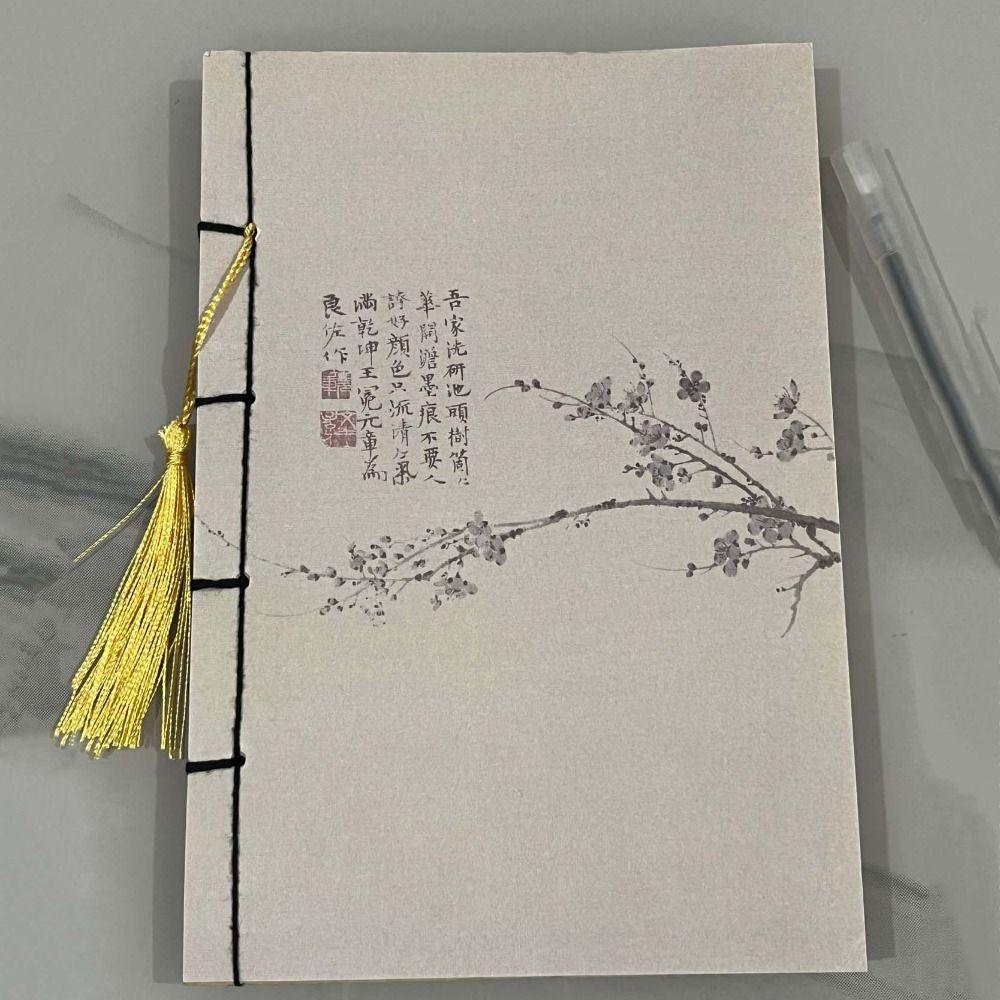 吾家洗研池頭樹箇〻
華開澹墨痕不要人
誇好顏色只流清氣
滿乾坤王冕元章為
良佐作